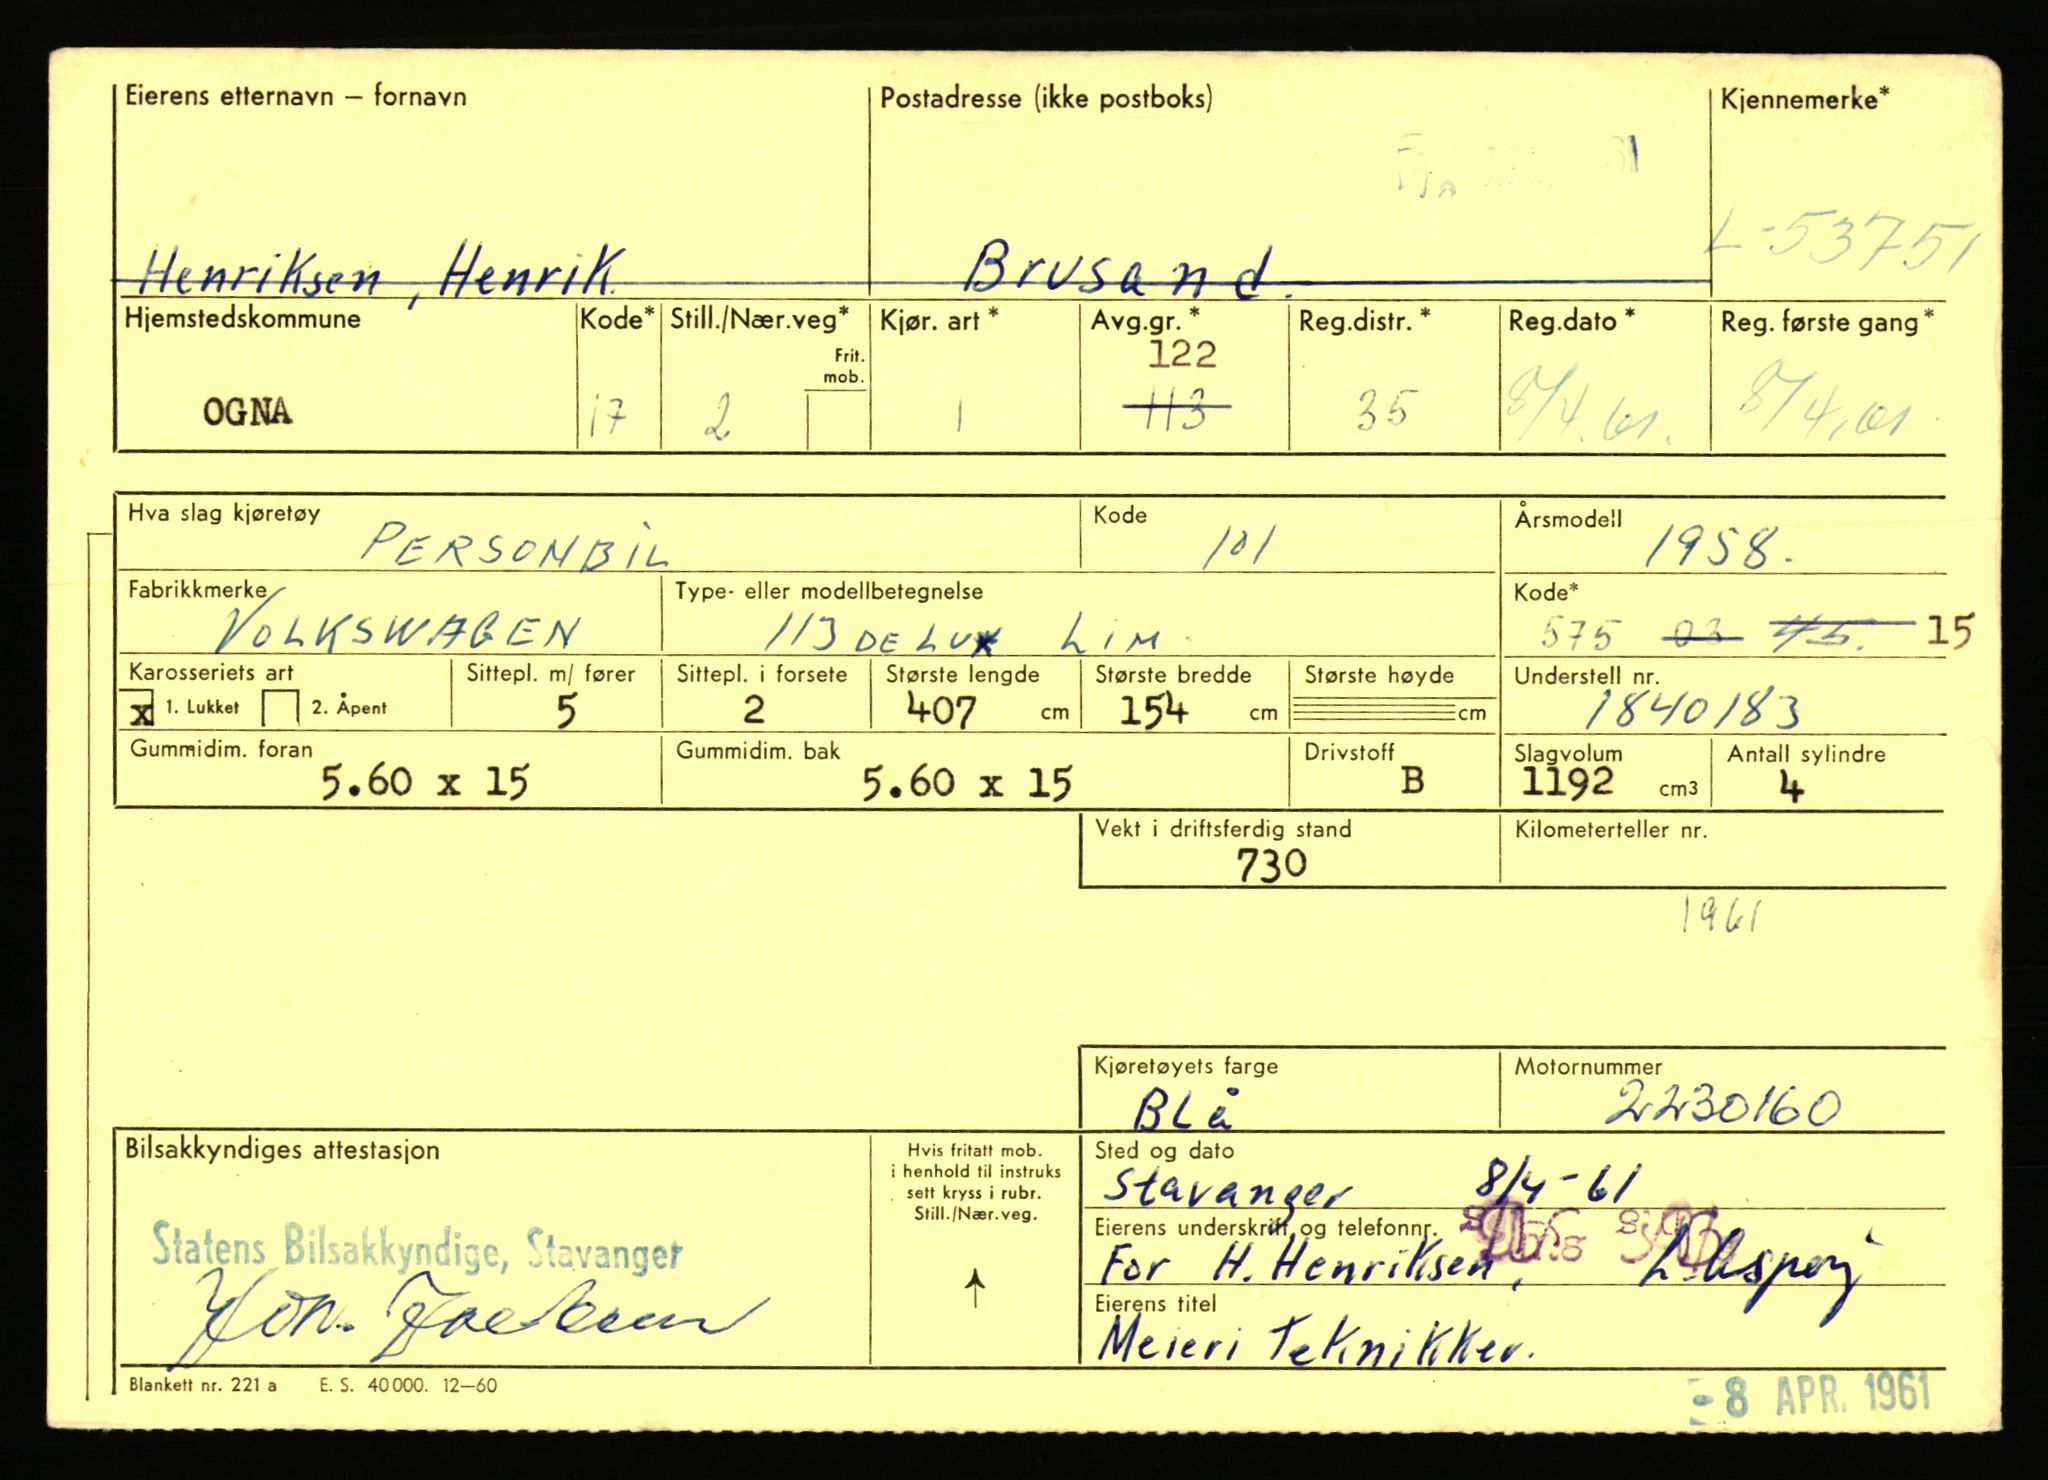 Eierens etternavn – fornavn Postadresse (ikke postboks) Kjennemerke*
L-53751
Henriksen, Henrik Brusand.
Hjemstedskommune Kode* Still./Nær.veg* Kjør. art* Avg.gr.* Reg.distr.* Reg.dato* Reg. første gang*
Frit. mob. 122
OGNA 17 2 1 113 35 8/4.61. 8/4.61.
Hva slag kjøretøy Kode Årsmodell
PERSONBIL 101 1958.
Fabrikkmerke Type- eller modellbetegnelse Kode*
VOLKSWAGEN 113 DE LUX LIM. 575 03 45. 15
Karosseriets art Sittepl. m/ fører Sittepl. i forsete Største lengde Største bredde Største høyde Understell nr.
x 1. Lukket 2. Åpent 5 2 407 cm 154 cm cm 1840183
Gummidim. foran Gummidim. bak Drivstoff Slagvolum Antall sylindre
5.60 x 15 5.60 x 15 B 1192 cm3 4
Vekt i driftsferdig stand Kilometerteller nr.
730
1961
Kjøretøyets farge Motornummer
BLå 2230160
Bilsakkyndiges attestasjon Hvis fritatt mob. Sted og dato
i henhold til instruks
sett kryss i rubr. Stavanger 8/4-61
Still./Nær.veg.
Eierens underskrift og telefonnr.
Statens Bilsakkyndige, Stavanger For H. Henriksen,
Eierens titel
Meieri Teknikker.
Blankett nr. 221 a E. S. 40 000. 12–60
8 APR. 1961